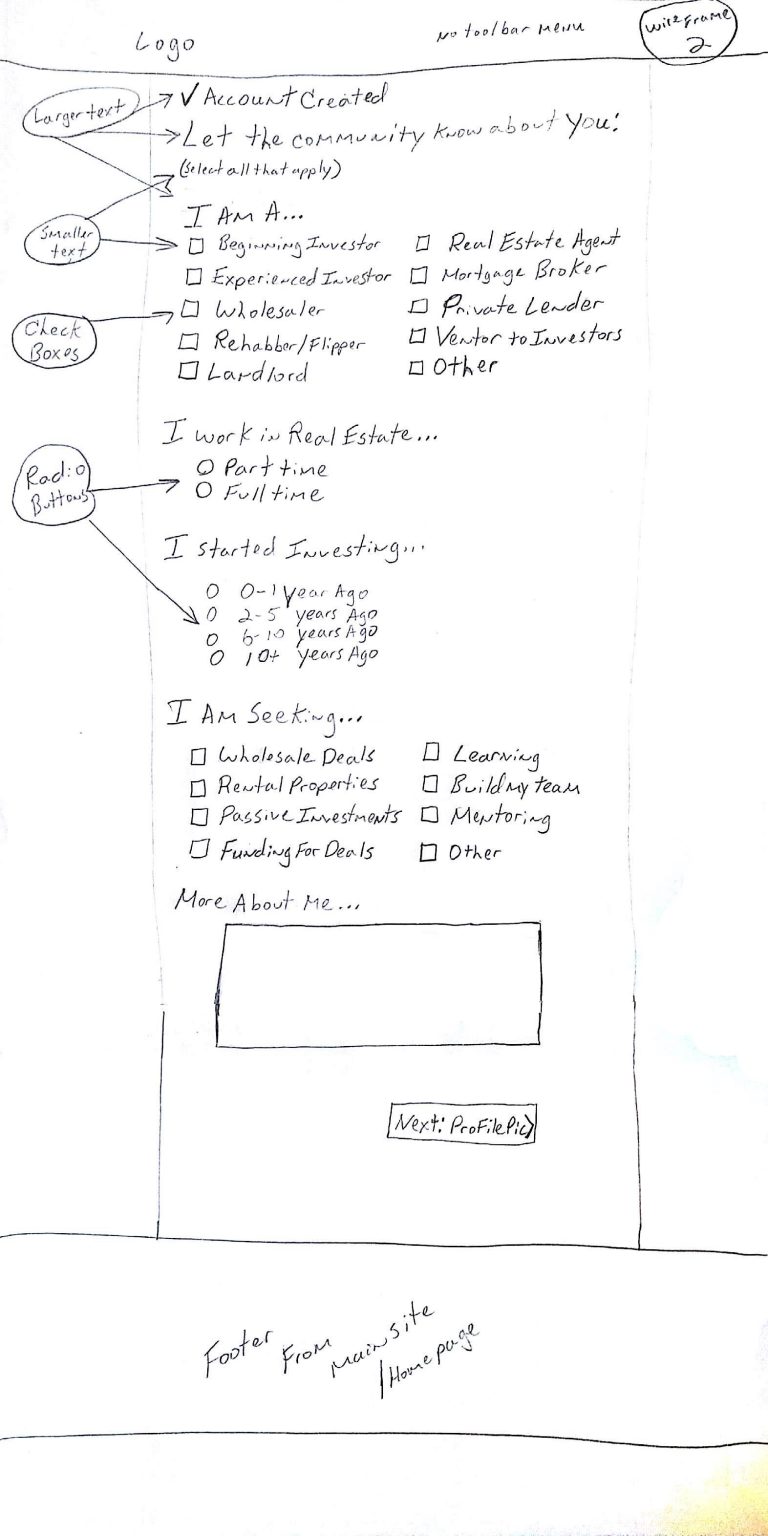 Logo
No toolbar menu
Wireframe
2
Larger text
✓ Account Created
Let the community know about you:
(Select all that apply)
I Am A...
Smaller
text
☐ Beginning Investor
☐ Real Estate Agent
☐ Experienced Investor
☐ Mortgage Broker
☐ Wholesaler
☐ Private Lender
Check
Boxes
☐ Rehabber/Flipper
☐ Ventor to Investors
☐ Landlord
☐ Other
I work in Real Estate...
Radio
Buttons
○ Part time
○ Full time
I started Investing...
○ 0-1 year Ago
○ 2-5 years Ago
○ 6-10 years Ago
○ 10+ years Ago
I Am Seeking...
☐ Wholesale Deals
☐ Learning
☐ Rental Properties
☐ Build my team
☐ Passive Investments
☐ Mentoring
☐ Funding For Deals
☐ Other
More About Me...
Next: Profile Pic >
Footer From Main Site
/Homepage